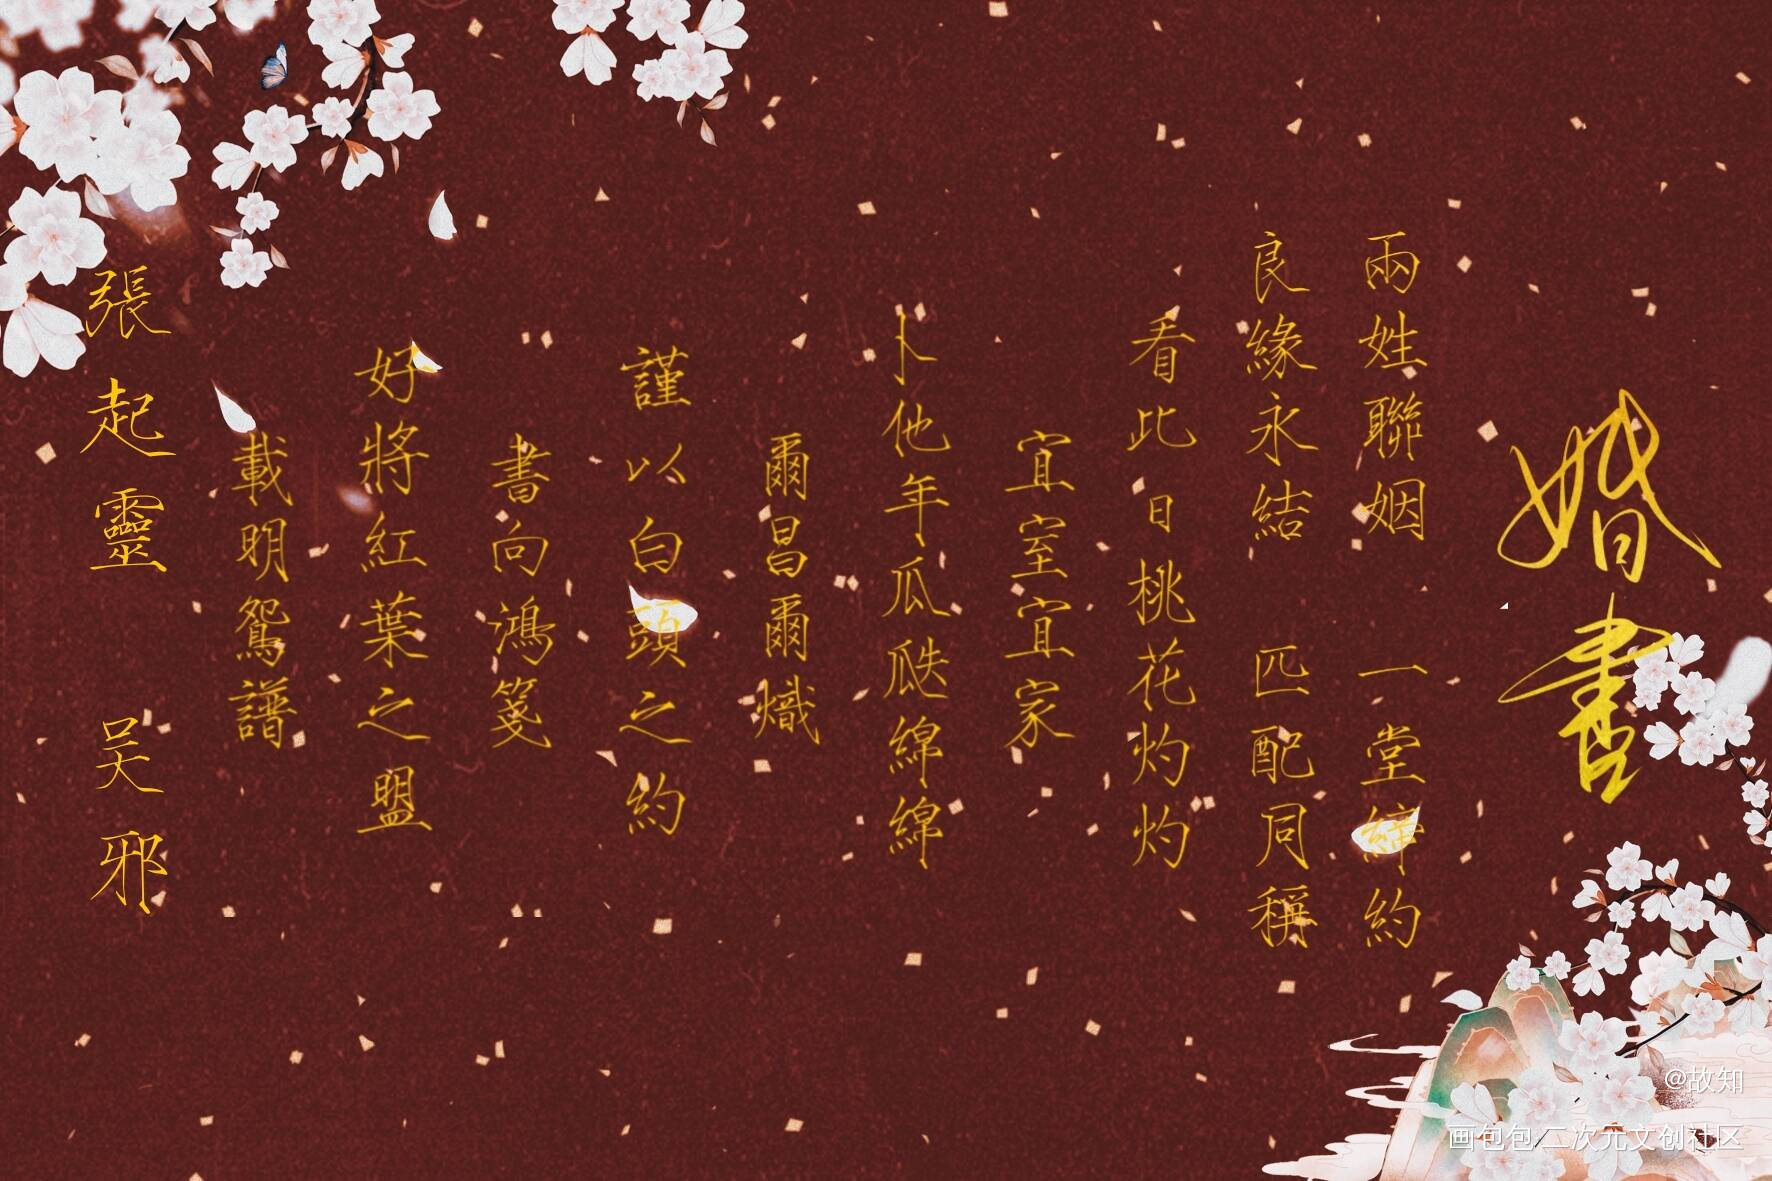 婚書
兩姓聯姻 一堂締約
良緣永結 匹配同稱
看此日桃花灼灼
宜室宜家
卜他年瓜瓞綿綿
爾昌爾熾
謹以白頭之約
書向鴻箋
好將紅葉之盟
載明鴛譜
張起靈 吴邪
@故知
画包包/二次元文创社区